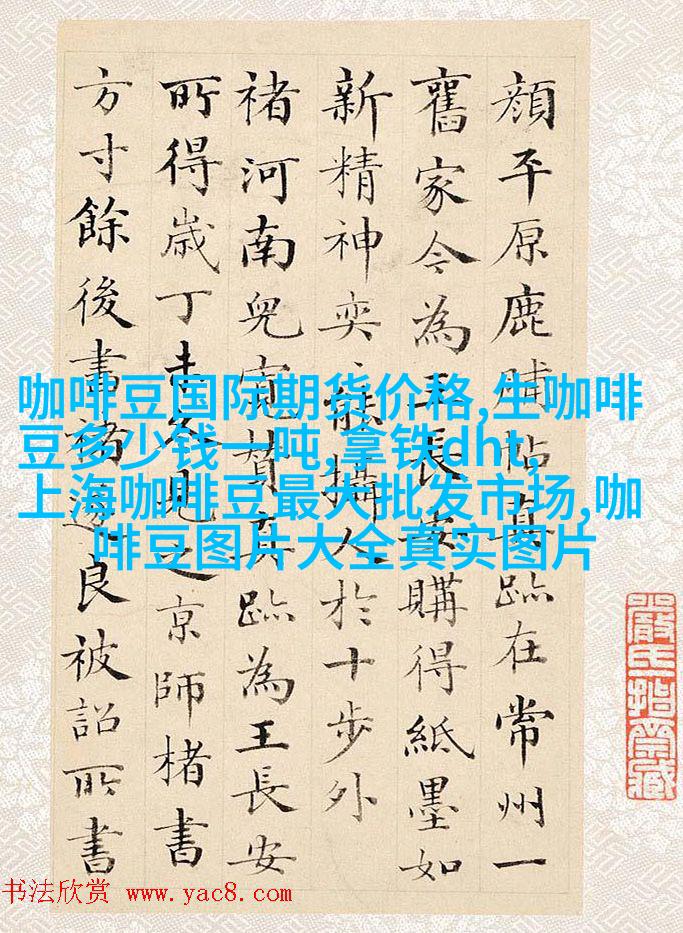 顏平原鹿脯帖真跡在常州一
舊家今為王長安購得紙墨如
新精神奕〻能攝人於十步外
褚河南兒寬贊真跡為王長安
所得歲丁未冬見之京師楮書
方寸餘後書褚遂良被詔所書
咖啡豆国际期货价格,生咖啡
豆多少钱一吨,拿铁dht
上海咖啡豆最大批发市场,咖
啡豆图片大全真实图片
书法欣赏 www.yac8.com